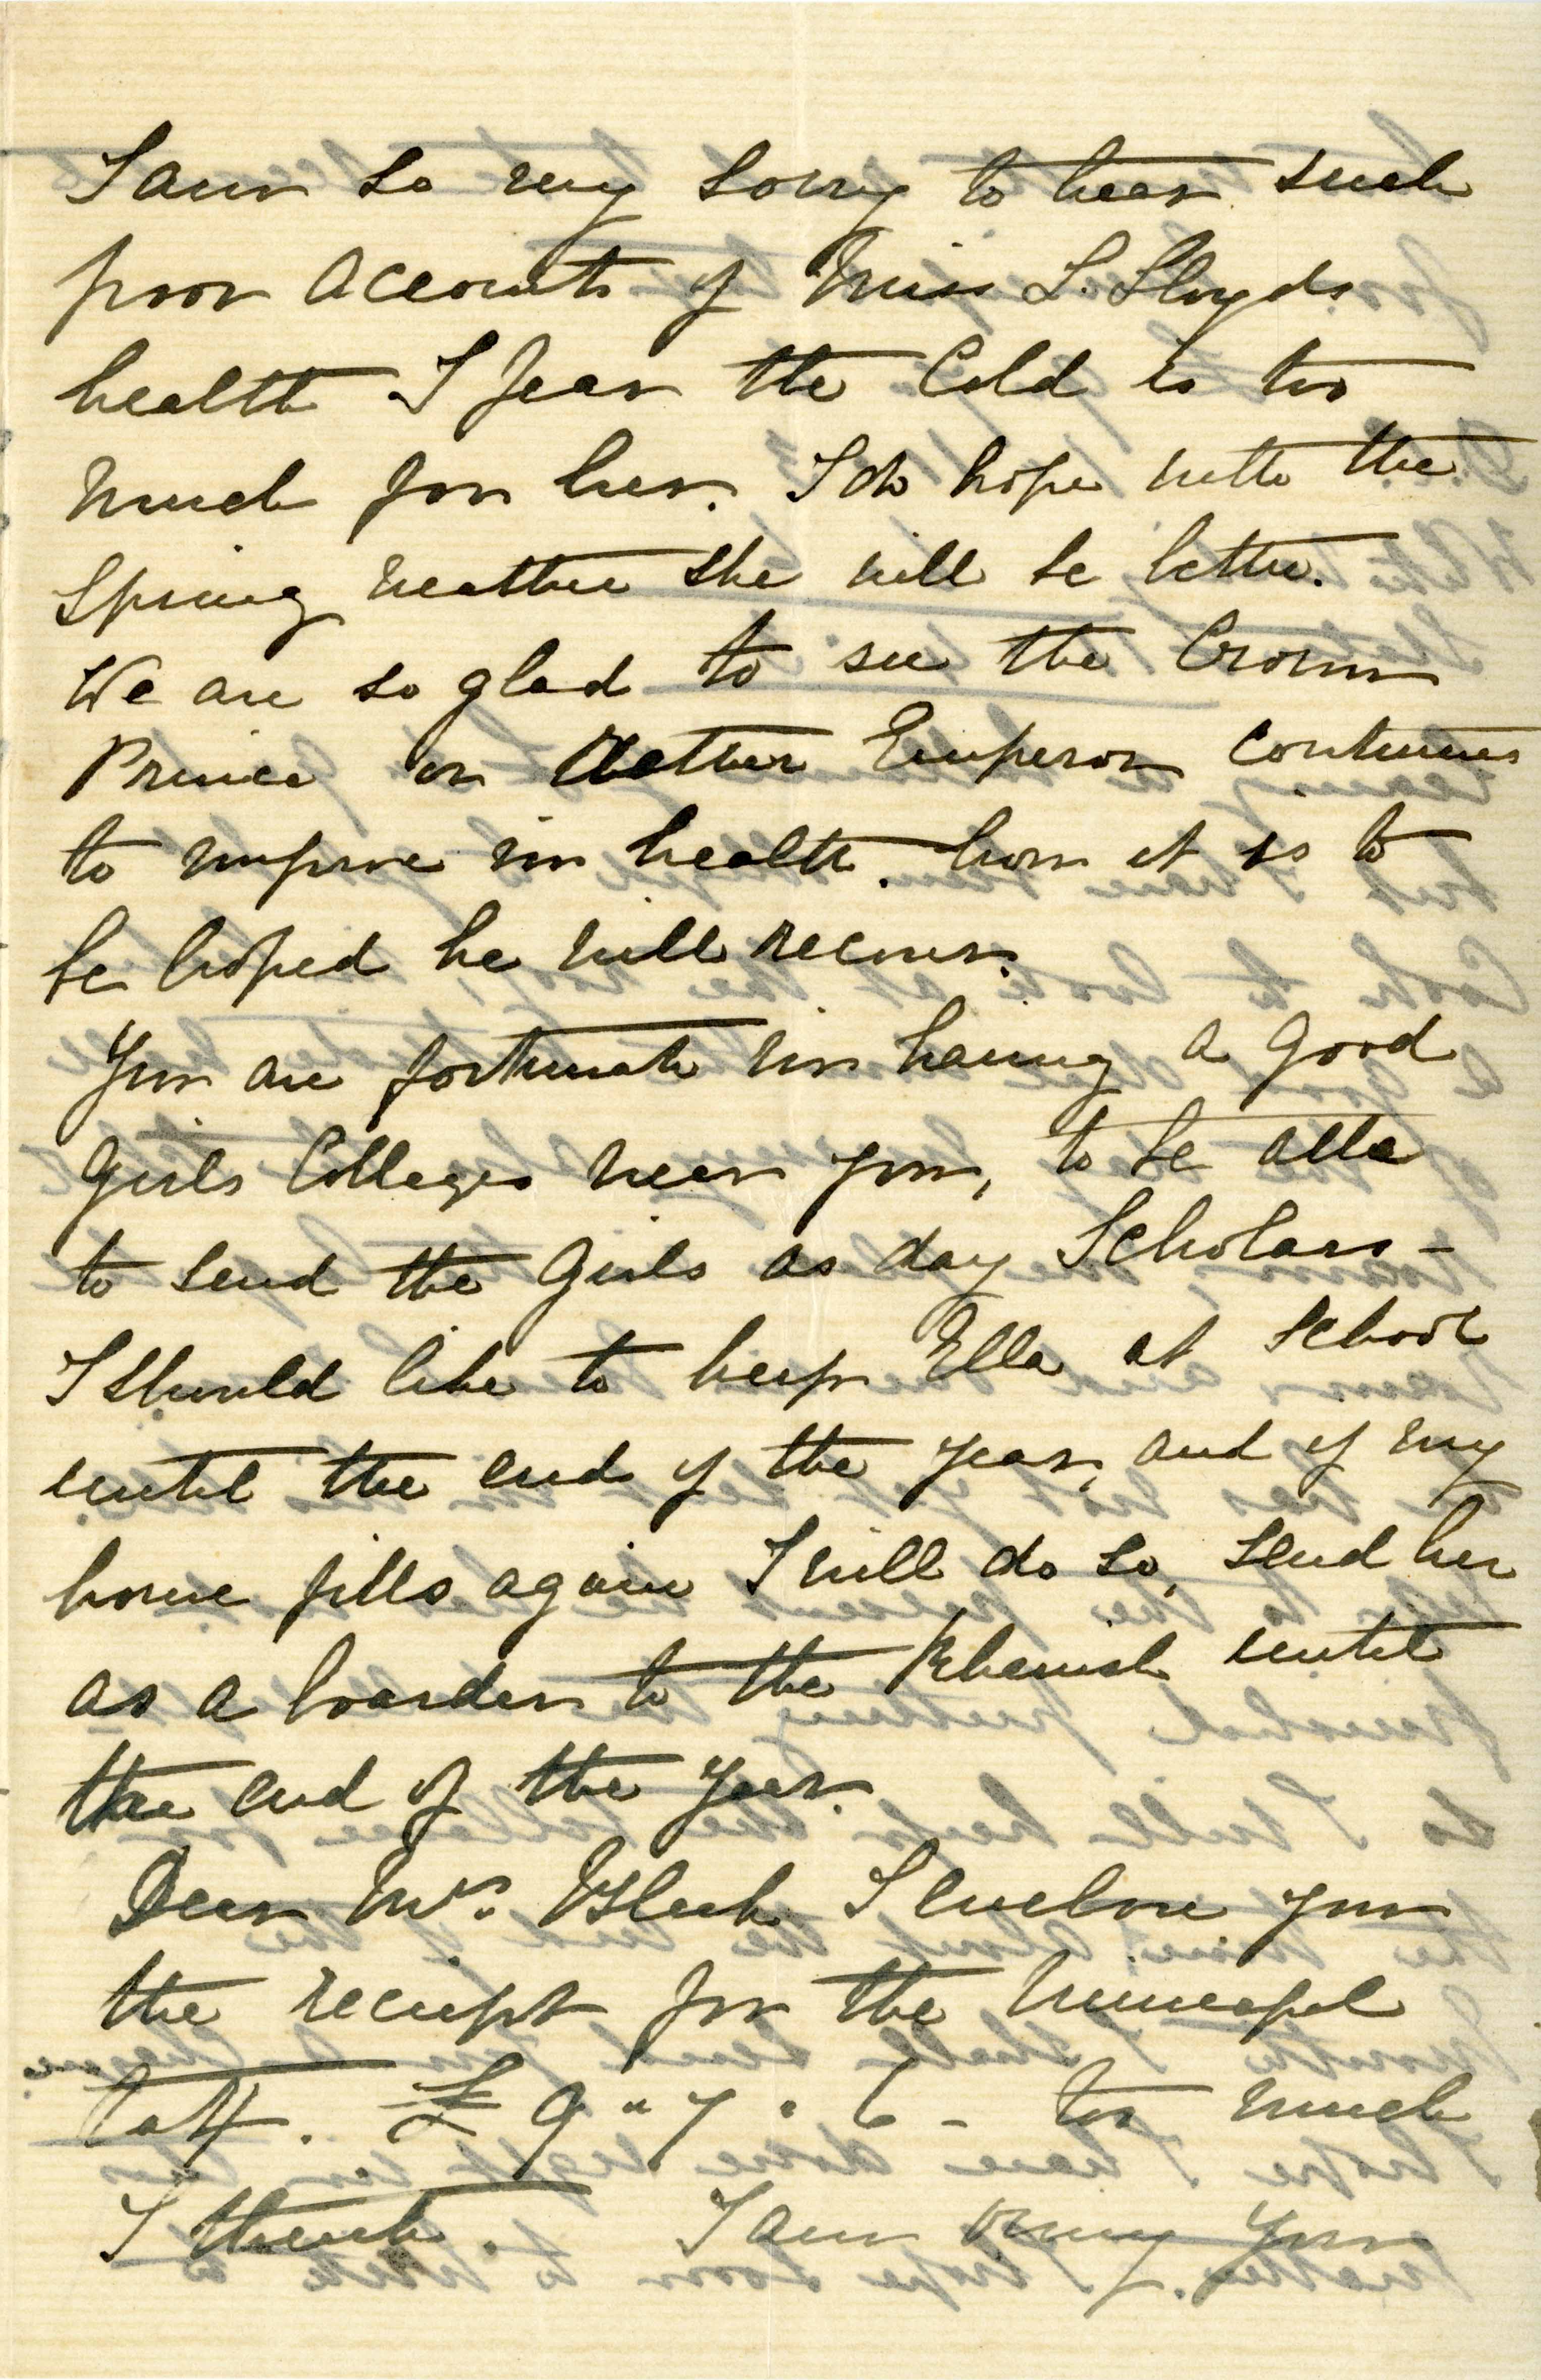 I am so very sorry to hear such
poor accounts of Miss L. Lloyds
health I fear the Cold is too
much for her. I do hope with the
Spring weather she will be better.
We are so glad to see the Crown
Prince or rather Emperor continues
to improve in health. how it is to
be hoped he will recover.
You are fortunate in having a good
Girls Colleges near you, to be able
to send the Girls as day Scholars -
I should like to keep Ella at School
until the end of the year, and if my
house fills again I will do so, send her
as a boarder to the Rhenish until
the end of the year.
Dear Mrs. Bleek I enclose you
the receipt for the Municipal
£ 9 " 7 " 6 - too much
I think. I am owing you